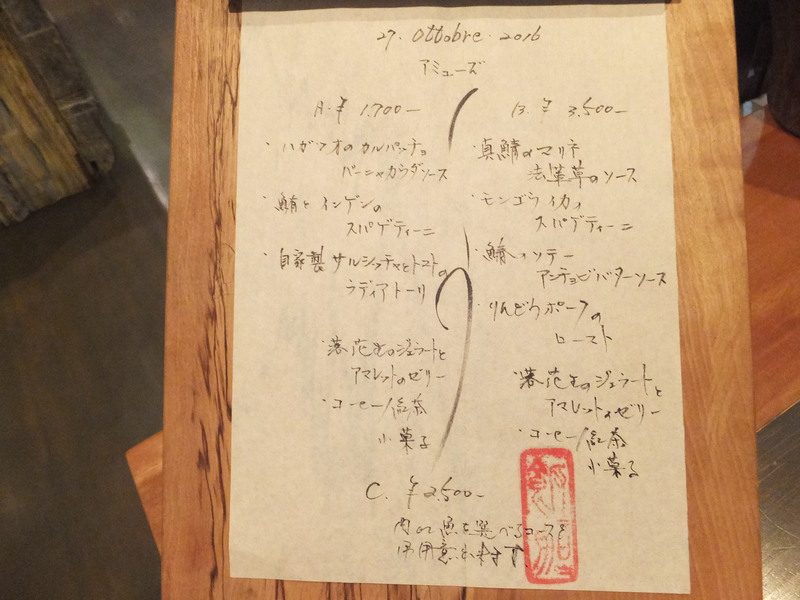 27. Ottobre. 2016
アミューズ
A. ¥ 1.700-
・ハガツオのカルパッチョ
バーニャカウダソース
・鯖とインゲンの
スパゲティーニ
・自家製サルシッチャとトマトの
ラディアトーリ
・落花生のジェラートと
アマレットのゼリー
・コーヒー/紅茶
小菓子
B. ¥ 3.500-
・真鯖のマリネ
法蓮草のソース
・モンゴウイカ
スパゲティーニ
ソテー
アンチョビバターソース
・りんどうポークの
ロースト
・落花生のジェラートと
アマレットのゼリー
・コーヒー/紅茶
小菓子
C. ¥2.500-
肉or魚を選べるコースを
御用意出来ます